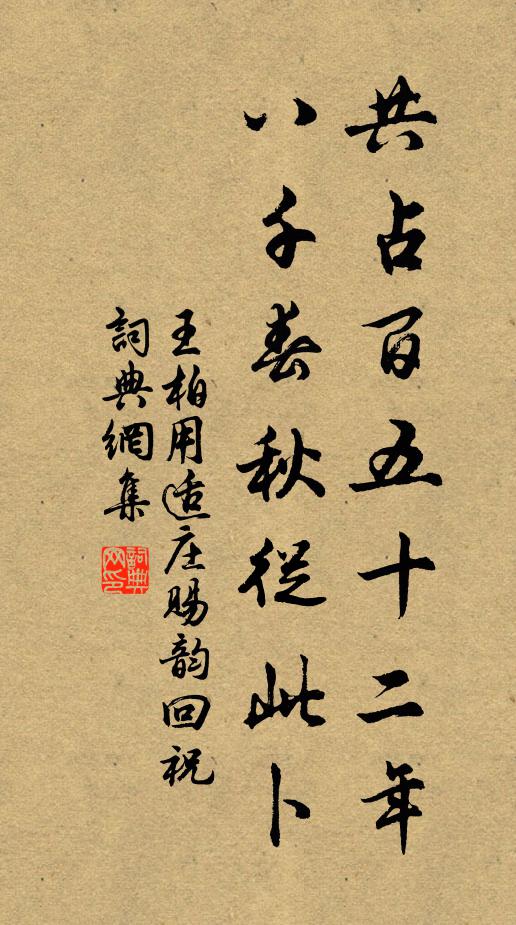 共占百五十二年
八千春秋從此卜
王柏用适庄賜韵回祝
詞典網集
詞典网印